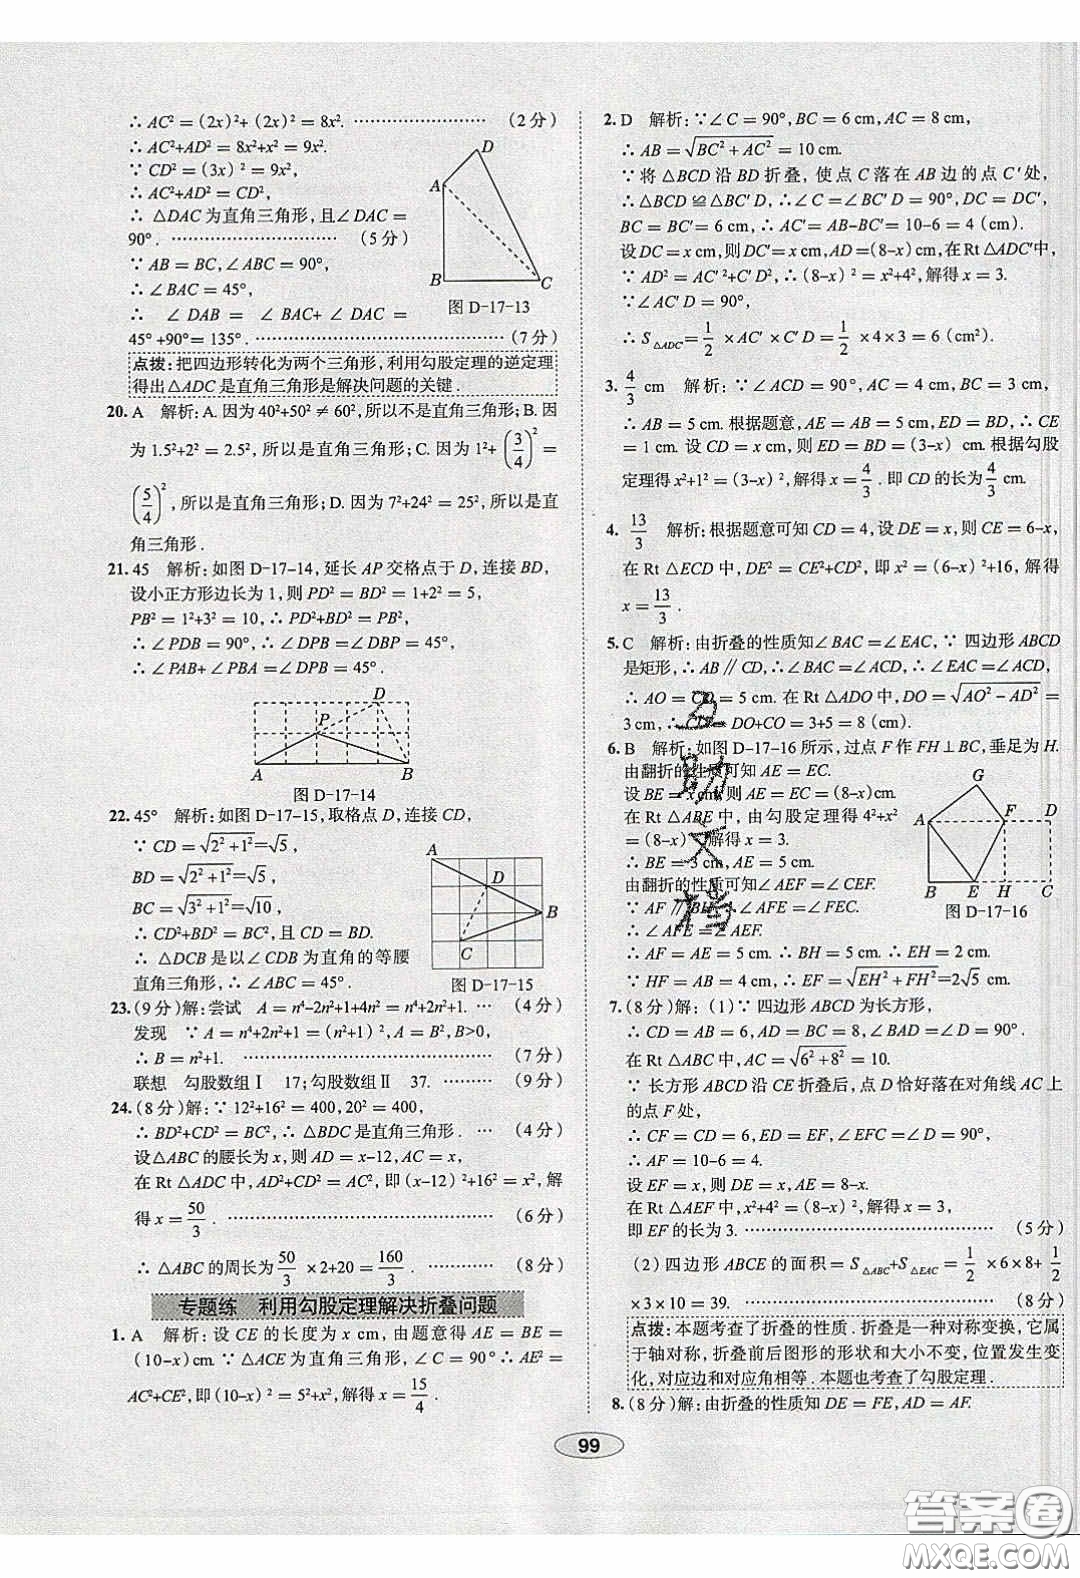 ∴ AC²=(2x)²+(2x)²=8x². ……………………(2分)
∴ AC²+AD²=8x²+x²=9x².
∵ CD²=(3x)²=9x²,
∴ AC²+AD²=CD²,
∴ △DAC为直角三角形,且∠DAC=
90°. ……………………(5分)
∵ AB=BC,∠ABC=90°,
∴ ∠BAC=45°,
∴ ∠DAB=∠BAC+∠DAC=
45°+90°=135°. ……………………(7分)
A
B
C
D
图 D-17-13
点拨:把四边形转化为两个三角形,利用勾股定理的逆定理
得出△ADC是直角三角形是解决问题的关键.
20. A 解析:A. 因为40²+50²≠60²,所以不是直角三角形;B. 因
为1.5²+2²=2.5²,所以是直角三角形;C. 因为1²+(3/4)²=
(5/4)²,所以是直角三角形;D. 因为7²+24²=25²,所以是直
角三角形.
21. 45 解析:如图D-17-14,延长AP交格点于D,连接BD,
设小正方形边长为1,则PD²=BD²=1+2²=5,
PB²=1²+3²=10,∴ PD²+BD²=PB²,
∴ ∠PDB=90°,∴ ∠DPB=∠DBP=45°,
∴ ∠PAB+∠PBA=∠DPB=45°.
D
P
A
B
图 D-17-14
22. 45° 解析:如图D-17-15,取格点D,连接CD,
∵ CD=√(2²+1²)=√5,
BD=√(2²+1²)=√5,
BC=√(3²+1²)=√10,
∴ CD²+BD²=BC²,且CD=BD.
∴ △DCB是以∠CDB为直角的等腰
直角三角形,∴ ∠ABC=45°.
A
D
B
C
图 D-17-15
23. (9分)解:尝试 A=n⁴-2n²+1+4n²=n⁴+2n²+1. …(4分)
发现 ∵ A=n⁴+2n²+1=(n²+1)²,A=B²,B>0,
∴ B=n²+1. ……………………(7分)
联想 勾股数组Ⅰ 17;勾股数组Ⅱ 37. ………(9分)
24. (8分)解:∵ 12²+16²=400,20²=400,
∴ BD²+CD²=BC²,∴ △BDC是直角三角形. …(4分)
设△ABC的腰长为x,则AD=x-12,AC=x,
在Rt△ADC中,AD²+CD²=AC²,即(x-12)²+16²=x²,解
得x=50/3. ……………………(6分)
∴ △ABC的周长为50/3×2+20=160/3. ………(8分)
专题练 利用勾股定理解决折叠问题
1. A 解析:设CE的长度为x cm,由题意得AE=BE=
(10-x)cm. ∵ △ACE为直角三角形,∠C=90°∴ AE²=
AC²+CE²,即(10-x)²=x²+5²,解得x=15/4.
2. D 解析:∵∠C=90°,BC=6 cm,AC=8 cm,
∴ AB=√(BC²+AC²)=10 cm.
∵ 将△BCD沿BD折叠,使点C落在AB边的点C′处,
∴ △BCD≌△BC′D,∴∠C=∠BC′D=90°,DC=DC′,
BC=BC′=6 cm,∴ AC′=AB-BC′=10-6=4(cm).
设DC=x cm,则DC′=x cm,AD=(8-x)cm,在Rt△ADC′中,
∵ AD²=AC′²+C′D²,∴ (8-x)²=x²+4²,解得x=3.
∵∠AC′D=90°,
∴ S△ADC′=1/2×AC′×C′D=1/2×4×3=6(cm²).
3. 4/3 cm 解析:∵∠ACD=90°,AC=4 cm,BC=3 cm,
∴ AB=5 cm. 根据题意,AE=AB=5 cm,ED=BD,∴ CE
=1 cm. 设CD=x cm,则ED=BD=(3-x)cm. 根据勾股
定理得x²+1²=(3-x)²,解得x=4/3. 即CD的长为4/3 cm.
4. 13/3 解析:根据题意可知CD=4,设DE=x,则CE=6-x,
在Rt△ECD中,DE²=CE²+CD²,即x²=(6-x)²+16,解得
x=13/3.
5. C 解析:由折叠的性质知∠BAC=∠EAC,∵ 四边形ABCD
是矩形,∴ AB∥CD,∴∠BAC=∠ACD,∴∠EAC=∠ACD,
∴ AO=CO=5 cm. 在Rt△ADO中,DO=√(AO²-AD²)=
3 cm,∴ CD=DO+CO=3+5=8(cm).
6. B 解析:如图D-17-16所示,过点F作FH⊥BC,垂足为H.
由翻折的性质可知AE=EC.
设BE=x cm,则AE=EC=(8-x)cm.
在Rt△ABE中,由勾股定理得4²+x²
=(8-x)²,解得x=3.
∴ BE=3 cm,AE=5 cm.
由翻折的性质可知∠AEF=∠CEF.
∵ AF∥BH,∴∠AFE=∠FEC.
∴ ∠AFE=∠AEF.
G
A
F
D
B
E
H
C
图 D-17-16
∴ AE=AF=5 cm. ∴ BH=5 cm. ∴ EH=2 cm.
∵ HF=AB=4 cm,∴ EF=√(EH²+FH²)=2√5 cm.
7. (8分)解:(1)∵ 四边形ABCD为长方形,
∴ CD=AB=6,AD=BC=8,∠BAD=∠D=90°.
在Rt△ABC中,AC=√(6²+8²)=10.
∵ 长方形ABCD沿CE折叠后,点D恰好落在对角线AC上
的点F处,
∴ CF=CD=6,ED=EF,∠EFC=∠D=90°,
∴ AF=10-6=4.
设EF=x,则DE=x,AE=8-x.
在Rt△AEF中,x²+4²=(8-x)²,解得x=3,
即EF的长为3. ……………………(5分)
(2)四边形ABCE的面积=S△ABC+S△EAC=1/2×6×8+1/2
×3×10=39. ……………………(8分)
点拨:本题考查了折叠的性质. 折叠是一种对称变换,它属
于轴对称,折叠前后图形的形状和大小不变,位置发生变
化,对应边和对应角相等. 本题也考查了勾股定理.
8. (8分)解:由折叠的性质知DE=FE,AD=AF.
99
互助文档
答案卷
MXQE.COM